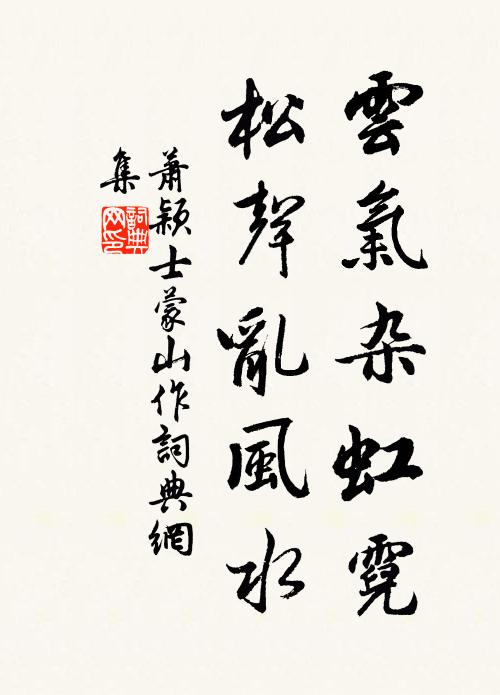 雲氣杂虹霓
松聲亂風水
蕭穎士蒙山作詞典網
集
詞典
网印